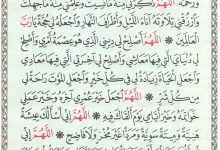 وَرَحْمَةً اللَّهُمَّ ذَكِّرْنِي مِنْهُ مَا نَسِيتُ وَعَلِّمْنِي مِنْهُ مَا جَهِلْتُ
وَارْزُقْنِي تِلَاوَتَهُ آنَاءَ اللَّيْلِ وَأَطْرَافَ النَّهَارِ وَاجْعَلْهُ لِي حُجَّةً يَا رَبَّ
الْعَالَمِينَ * اللَّهُمَّ أَصْلِحْ لِي دِينِي الَّذِي هُوَ عِصْمَةُ أَمْرِي وَأَصْلِحْ
لِي دُنْيَايَ الَّتِي فِيهَا مَعَاشِي وَأَصْلِحْ لِي آخِرَتِي الَّتِي فِيهَا مَعَادِي
وَاجْعَلِ الْحَيَاةَ زِيَادَةً لِي فِي كُلِّ خَيْرٍ وَاجْعَلِ الْمَوْتَ رَاحَةً لِي
مِنْ كُلِّ شَرٍّ * اللَّهُمَّ اجْعَلْ خَيْرَ عُمْرِي آخِرَهُ وَخَيْرَ عَمَلِي
خَوَاتِمَهُ وَخَيْرَ أَيَّامِي يَوْمَ أَلْقَاكَ فِيهِ * اللَّهُمَّ إِنِّي أَسْأَلُكَ عِيشَةً
هَنِيَّةً وَمِيتَةً سَوِيَّةً وَمَرَدًّا غَيْرَ مُخْزٍ وَلَا فَاضِحٍ * اللَّهُمَّ إِنِّي